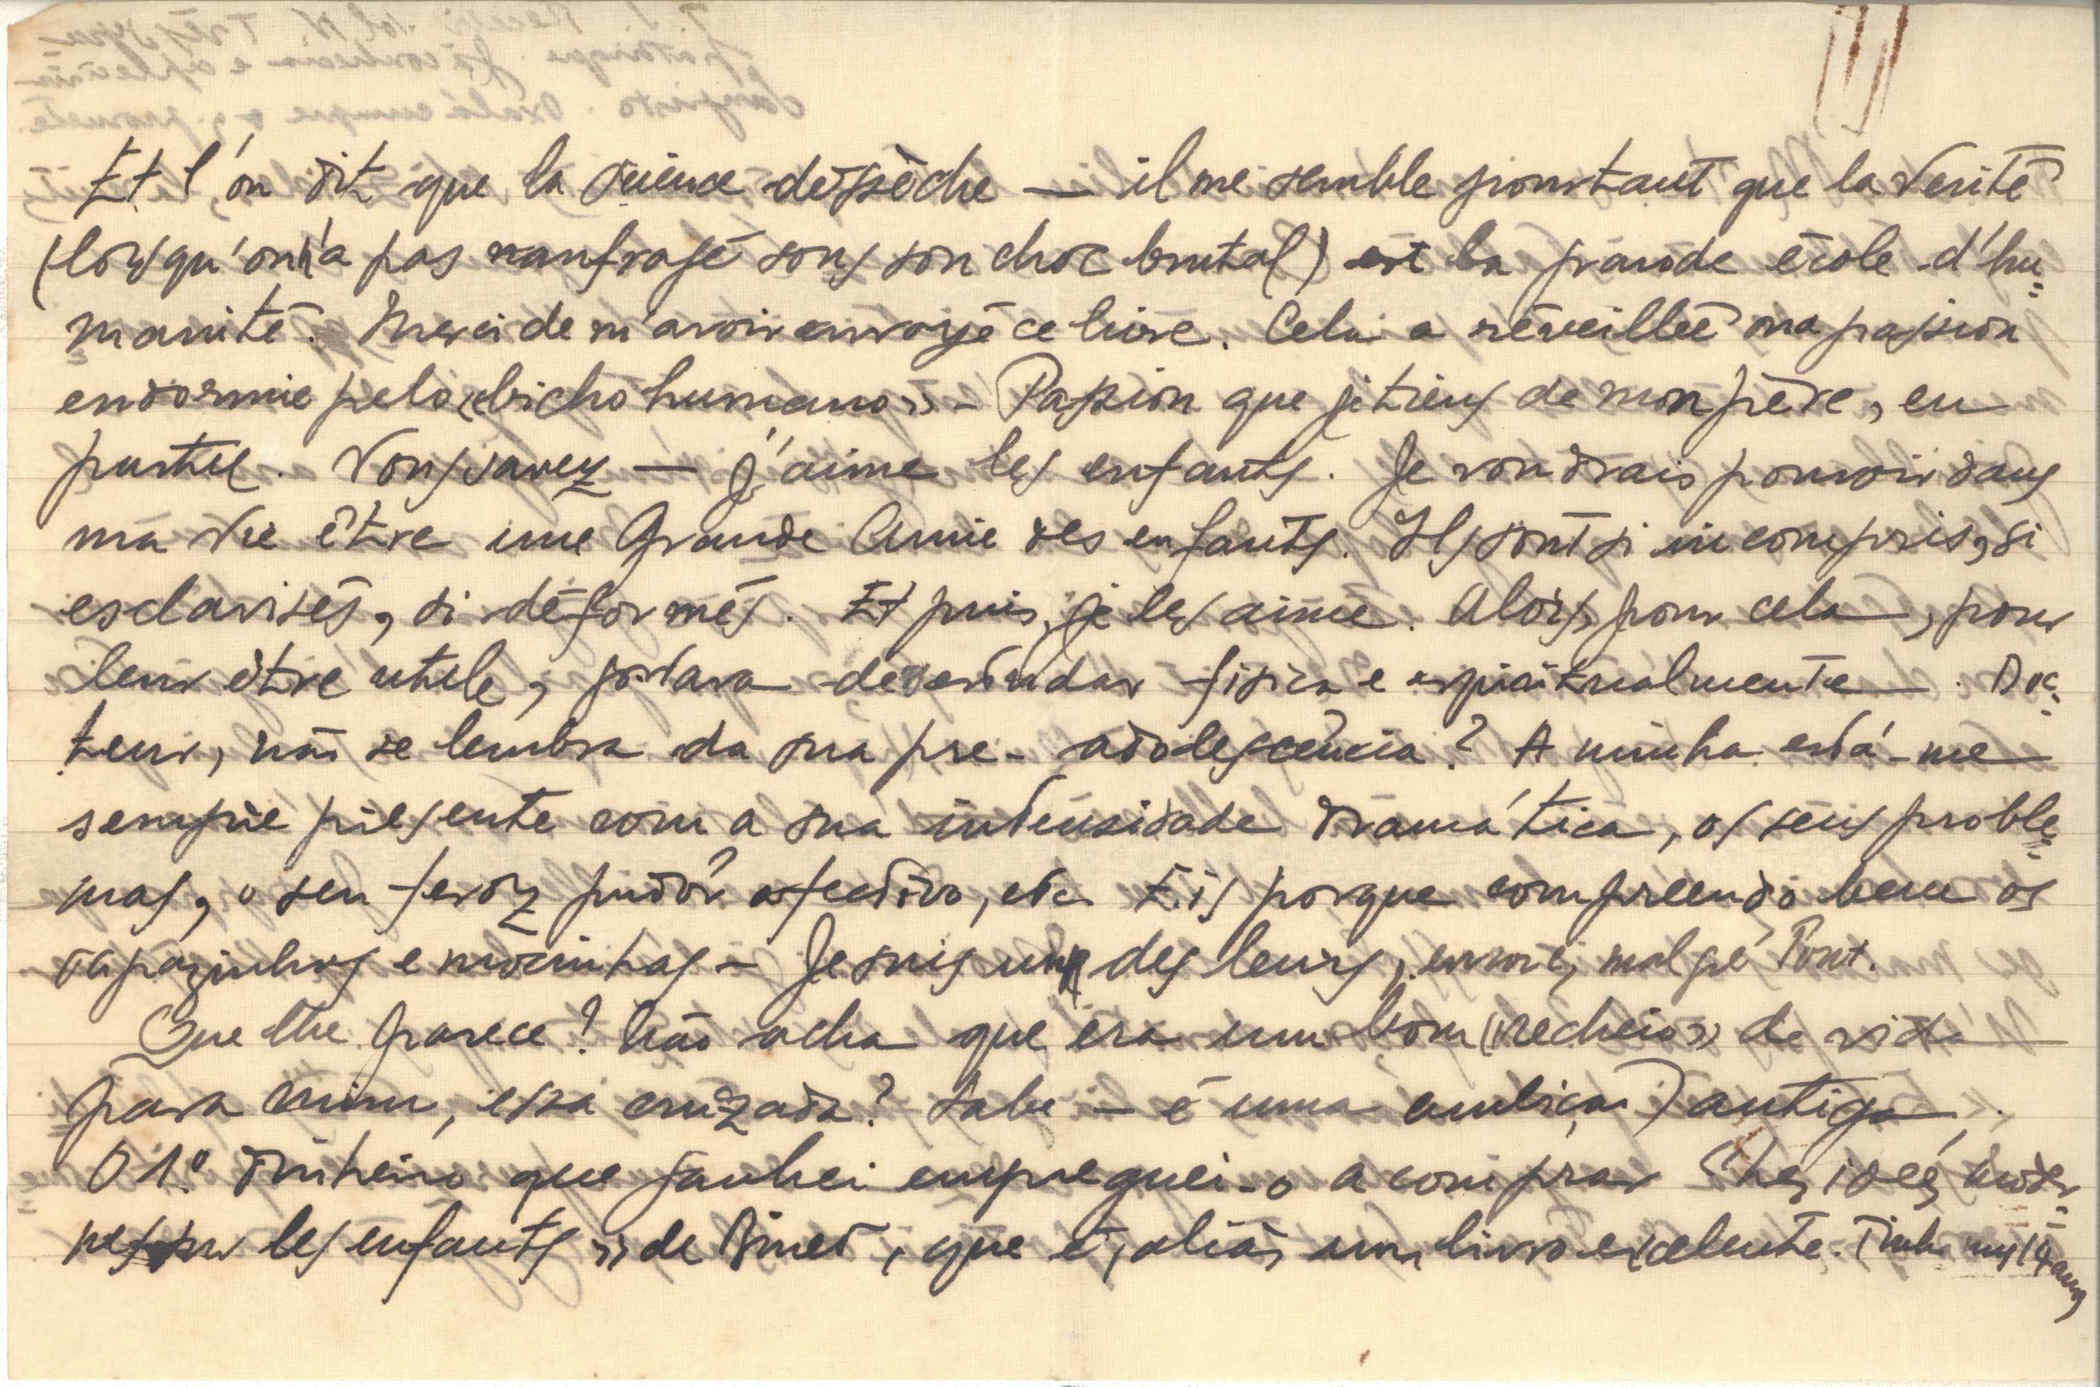 Et l'on dit que la science dessèche — il me semble pourtant que la Verité
(lorsqu'on n'a pas naufragé sous son choc brutal) est la grande école d'hu=
manité. Merci de m'avoir envoyé ce livre. Cela a réveillé ma passion
endormie pelo «bicho humano» – Passion que je tiens de mon père, en
partie. Vous savez — j'aime les enfants. Je voudrais pouvoir dans
ma vie être une Grande Amie des enfants. Ils sont si incompris, si
esclavisés, si déformés. Et puis, je les aime. Alors, pour cela, pour
leur être utile, gostava de os estudar fisica e espiritualmente —. Doc=
teur, não se lembra da sua pre-adolescência? A minha está-me
sempre presente com a sua intensidade dramática, os seus proble=
mas, o seu feroz pudôr afectivo, etc. Eis porque compreendo bem os
rapazinhos e mocinhas – Je suis une des leurs, encore, malgré tout.
Que lhe parece? Não acha que era um bom «recheio» de vida
para mim, essa cruzada? Sabe – é uma ambição antiga.
O 1º dinheiro que ganhei empreguei-o a comprar «Les idées moder=
nes sur les enfants» de Binet, que é, aliás, um livro excelente. Tinha uns 14 anos